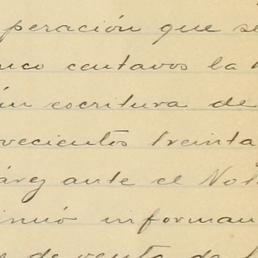 peración que se
nco centavos la
ún escritura de
vecientos treinta
árez ante el Not
inuó informan
e de venta de l